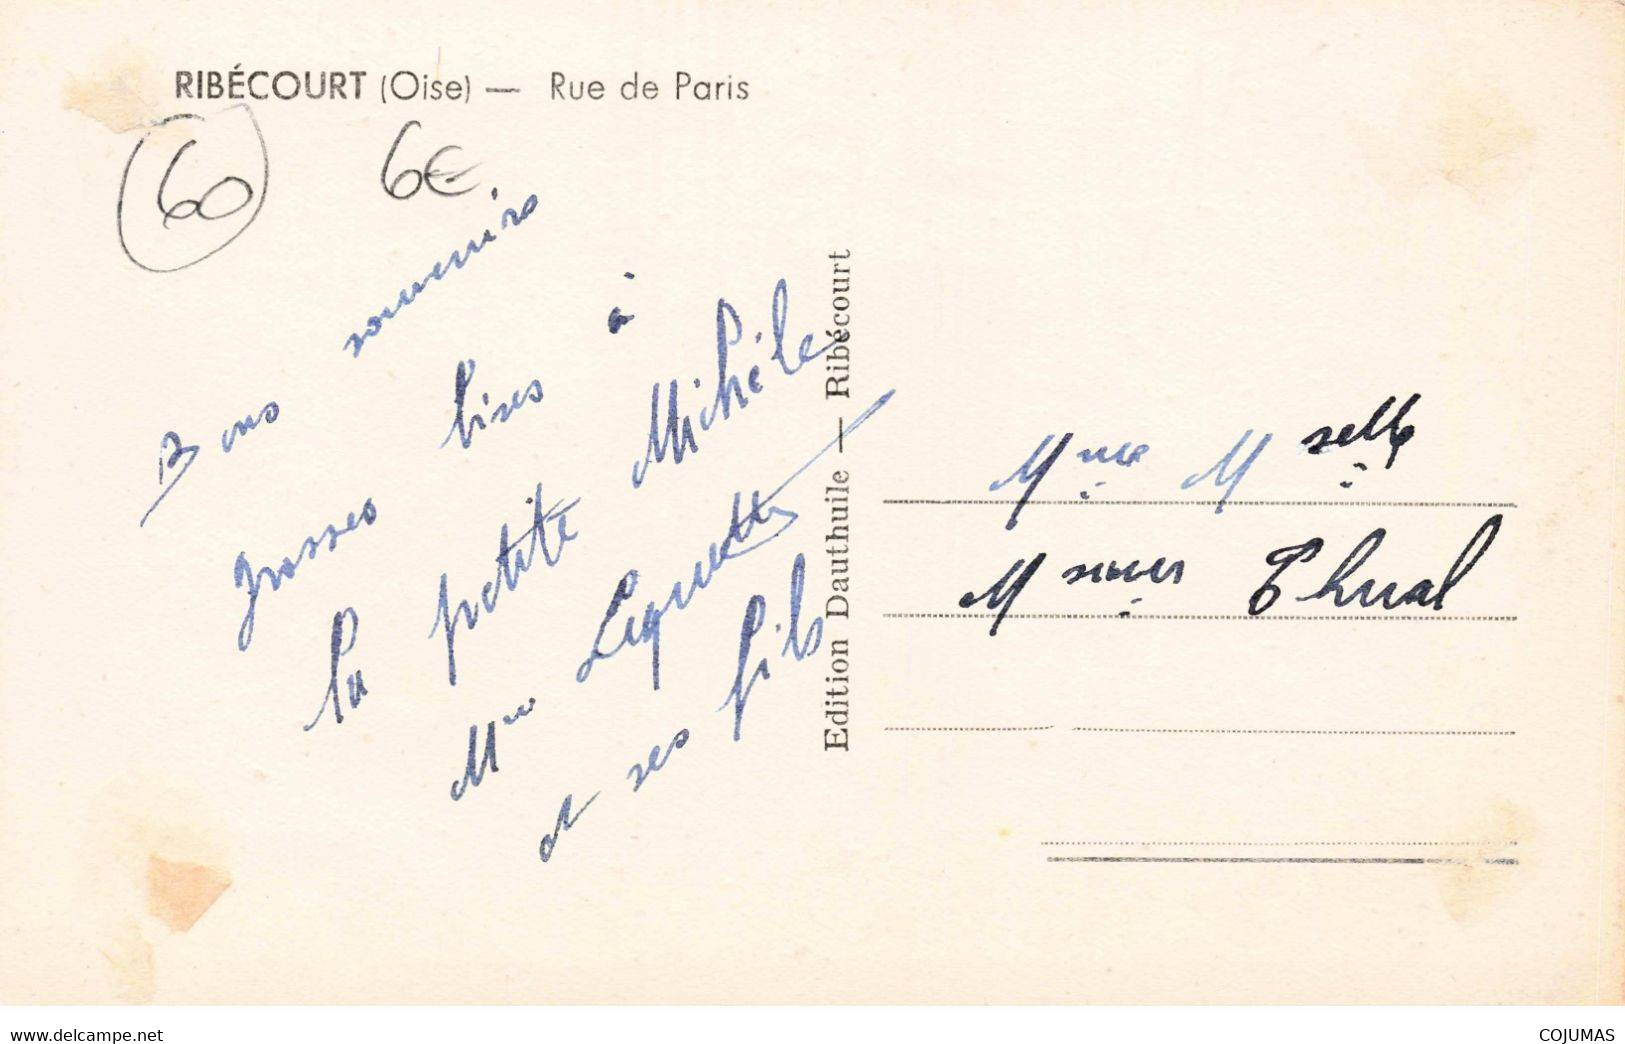 RIBÉCOURT (Oise) — Rue de Paris
60 6€
Bons souvenirs
grosses bises à
la petite Michéle
Mme
et ses fils
Edition Dauthuile — Ribécourt
Mme Mselle
Thual
delcampe.net
COJUMAS